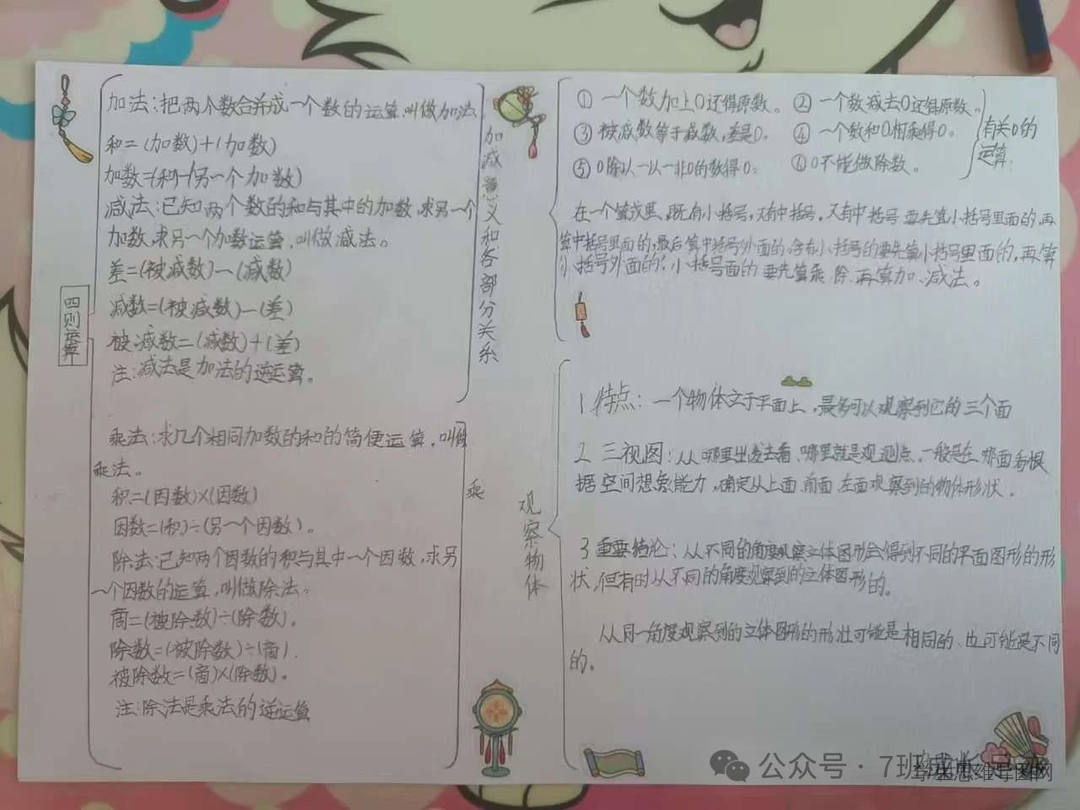 四则运算
加法:把两个数合并成一个数的运算,叫做加法
和=(加数)+(加数)
加数=(和)-(另一个加数)
减法:已知两个数的和与其中的加数,求另一个
加数,求另一个加数运算,叫做减法。
差=(被减数)-(减数)
减数=(被减数)-(差)
被减数=(减数)+(差)
注:减法是加法的逆运算。
加减意义和各部分关系
乘法:求几个相同加数的和的简便运算,叫做
乘法。
积=(因数)×(因数)
因数=(积)÷(另一个因数)。
除法:已知两个因数的积与其中一个因数,求另
一个因数的运算,叫做除法。
商=(被除数)÷(除数)。
除数=(被除数)÷(商).
被除数=(商)×(除数)。
注:除法是乘法的逆运算
乘
① 一个数加上0还得原数。 ② 一个数减去0还得原数。
③ 被减数等于减数,差是0。 ④ 一个数和0相乘得0。
⑤ 0除以一从一非0的数得0。 ⑥ 0不能做除数。
有关0的
运算:
在一个算式里,既有小括号,又有中括号,又有中括号要先算小括号里面的,再
算中括号里面的,最后算中括号外面的,含有小括号的要先算小括号里面的,再算
小括号外面的;小括号面的要先算乘、除、再算加、减法。
观察物体
1 特点:一个物体立于平面上,最多可以观察到它的三个面
2 三视图:从哪里出发去看、哪里就是观测点、一般是在那面看根
据空间想象能力,确定从上面、前面、左面观察到的物体形状。
3 重要结论:从不同的角度观察立体图形会得到不同的平面图形的形
状,但有时从不同的角度观察到的立体图形的。
从同一角度观察到的立体图形的形壮可能是相同的、也可能是不同
的。
公众号·7班
思维导图网